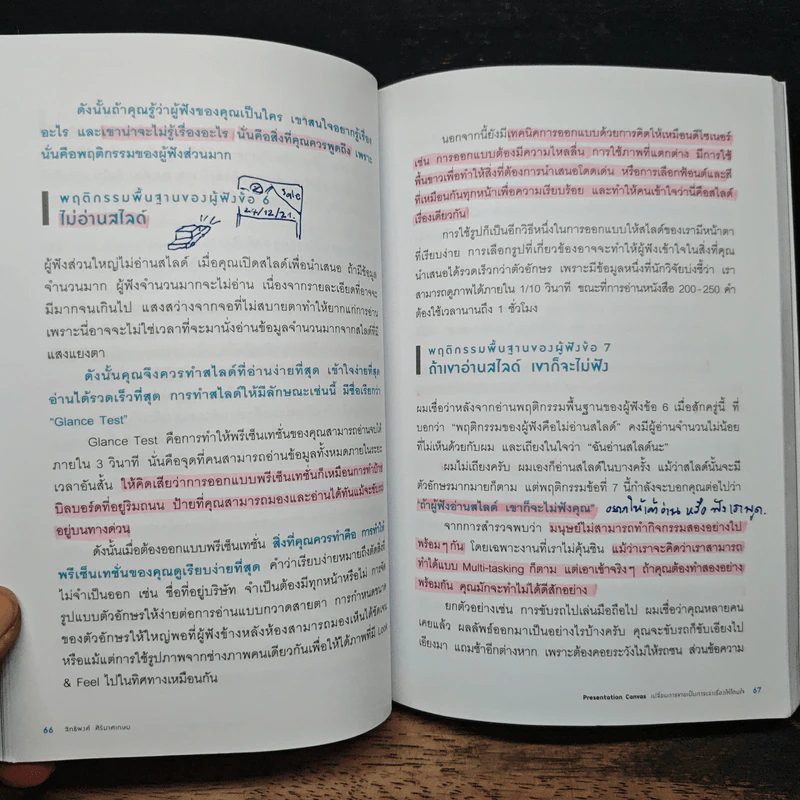 ดังนั้นถ้าคุณรู้ว่าผู้ฟังของคุณเป็นใคร เขาสนใจอยากรู้เรื่อง
อะไร และเขาน่าจะไม่รู้เรื่องอะไร นั่นคือสิ่งที่คุณควรพูดถึง เพราะ
นั่นคือพฤติกรรมของผู้ฟังส่วนมาก
พฤติกรรมพื้นฐานของผู้ฟังข้อ 6
ไม่อ่านสไลด์
Sale
27/12/21
ผู้ฟังส่วนใหญ่ไม่อ่านสไลด์ เมื่อคุณเปิดสไลด์เพื่อนำเสนอ ถ้ามีข้อมูล
จำนวนมาก ผู้ฟังจำนวนมากจะไม่อ่าน เนื่องจากรายละเอียดที่อาจจะ
มีมากจนเกินไป แสงสว่างจากจอที่ไม่สบายตาทำให้ยากแก่การอ่าน
เพราะนี่อาจจะไม่ใช่เวลาที่จะมานั่งอ่านข้อมูลจำนวนมากจากสไลด์ที่มี
แสงแยงตา
ดังนั้นคุณจึงควรทำสไลด์ที่อ่านง่ายที่สุด เข้าใจง่ายที่สุด
อ่านได้รวดเร็วที่สุด การทำสไลด์ให้มีลักษณะเช่นนี้ มีชื่อเรียกว่า
“Glance Test”
Glance Test คือการทำให้พรีเซ็นเทชั่นของคุณสามารถอ่านจบได้
ภายใน 3 วินาที นั่นคือจุดที่คนสามารถอ่านข้อมูลทั้งหมดภายในระยะ
เวลาอันสั้น ให้คิดเสียว่าการออกแบบพรีเซ็นเทชั่นก็เหมือนการทำป้าย
บิลบอร์ดที่อยู่ริมถนน ป้ายที่คุณสามารถมองและอ่านได้ทันแม้จะขับรถ
อยู่บนทางด่วน
ดังนั้นเมื่อต้องออกแบบพรีเซ็นเทชั่น สิ่งที่ควรทำคือ การทำให้
พรีเซ็นเทชั่นของคุณดูเรียบง่ายที่สุด คำว่าเรียบง่ายหมายถึงตัดสิ่งที่
ไม่จำเป็นออก เช่น ชื่อที่อยู่บริษัท จำเป็นต้องมีทุกหน้าหรือไม่ การจัด
รูปแบบตัวอักษรให้ง่ายต่อการอ่านแบบกวาดสายตา การกำหนดขนาด
ของตัวอักษรให้ใหญ่พอที่ผู้ฟังข้างหลังห้องสามารถมองเห็นได้ชัดเจน
หรือแม้แต่การใช้รูปภาพจากช่างภาพคนเดียวกันเพื่อให้ได้ภาพที่มี Look
& Feel ไปในทิศทางเหมือนกัน
66 สิทธิพงศ์ ศิริมาศเกษม
นอกจากนี้ยังมีเทคนิคการออกแบบด้วยการคิดให้เหมือนดีไซเนอร์
เช่น การออกแบบต้องมีความไหลลื่น การใช้ภาพที่แตกต่าง มีการใช้
พื้นขาวเพื่อทำให้สิ่งที่ต้องการนำเสนอโดดเด่น หรือการเลือกฟ้อนต์และสี
ที่เหมือนกันทุกหน้าเพื่อความเรียบร้อย และทำให้คนเข้าใจว่านี่คือสไลด์
เรื่องเดียวกัน
การใช้รูปก็เป็นอีกวิธีหนึ่งในการออกแบบให้สไลด์ของเรามีหน้าตา
ที่เรียบง่าย การเลือกรูปที่เกี่ยวข้องอาจจะทำให้ผู้ฟังเข้าใจในสิ่งที่คุณ
นำเสนอได้รวดเร็วกว่าตัวอักษร เพราะมีข้อมูลหนึ่งที่นักวิจัยบ่งชี้ว่า เรา
สามารถดูภาพได้ภายใน 1/10 วินาที ขณะที่การอ่านหนังสือ 200-250 คำ
ต้องใช้เวลานานถึง 1 ชั่วโมง
พฤติกรรมพื้นฐานของผู้ฟังข้อ 7
ถ้าเขาอ่านสไลด์ เขาก็จะไม่ฟัง
ผมเชื่อว่าหลังจากอ่านพฤติกรรมพื้นฐานของผู้ฟังข้อ 6 เมื่อสักครู่นี้ ที่
บอกว่า “พฤติกรรมของผู้ฟังคือไม่อ่านสไลด์” คงมีผู้อ่านจำนวนไม่น้อย
ที่ไม่เห็นด้วยกับผม และเถียงในใจว่า “ฉันอ่านสไลด์นะ”
ผมไม่เถียงครับ ผมเองก็อ่านสไลด์ในบางครั้ง แม้ว่าสไลด์นั้นจะมี
ตัวอักษรมากมายก็ตาม แต่พฤติกรรมข้อที่ 7 นี้กำลังจะบอกคุณต่อไปว่า
“ถ้าผู้ฟังอ่านสไลด์ เขาก็จะไม่ฟังคุณ” อยากให้เค้าอ่าน หรือ ฟังเราพูด.
จากการสำรวจพบว่า มนุษย์ไม่สามารถทำกิจกรรมสองอย่างไป
พร้อมๆกัน โดยเฉพาะงานที่เราไม่คุ้นชิน แม้ว่าเราจะคิดว่าเราสามารถ
ทำได้แบบ Multi-tasking ก็ตาม แต่เอาเข้าจริงๆ ถ้าคุณต้องทำสองอย่าง
พร้อมกัน คุณมักจะทำไม่ได้ดีสักอย่าง
ยกตัวอย่างเช่น การขับรถไปเล่นมือถือไป ผมเชื่อว่าคุณหลายคน
เคยแล้ว ผลลัพธ์ออกมาเป็นอย่างไรบ้างครับ คุณจะขับรถก็ขับเอียงไป
เอียงมา แถมช้าอีกต่างหาก เพราะต้องคอยระวังไม่ให้รถชน ส่วนข้อความ
Presentation Canvas เปลี่ยนการขายเป็นการเล่าเรื่องให้โดนใจ 67